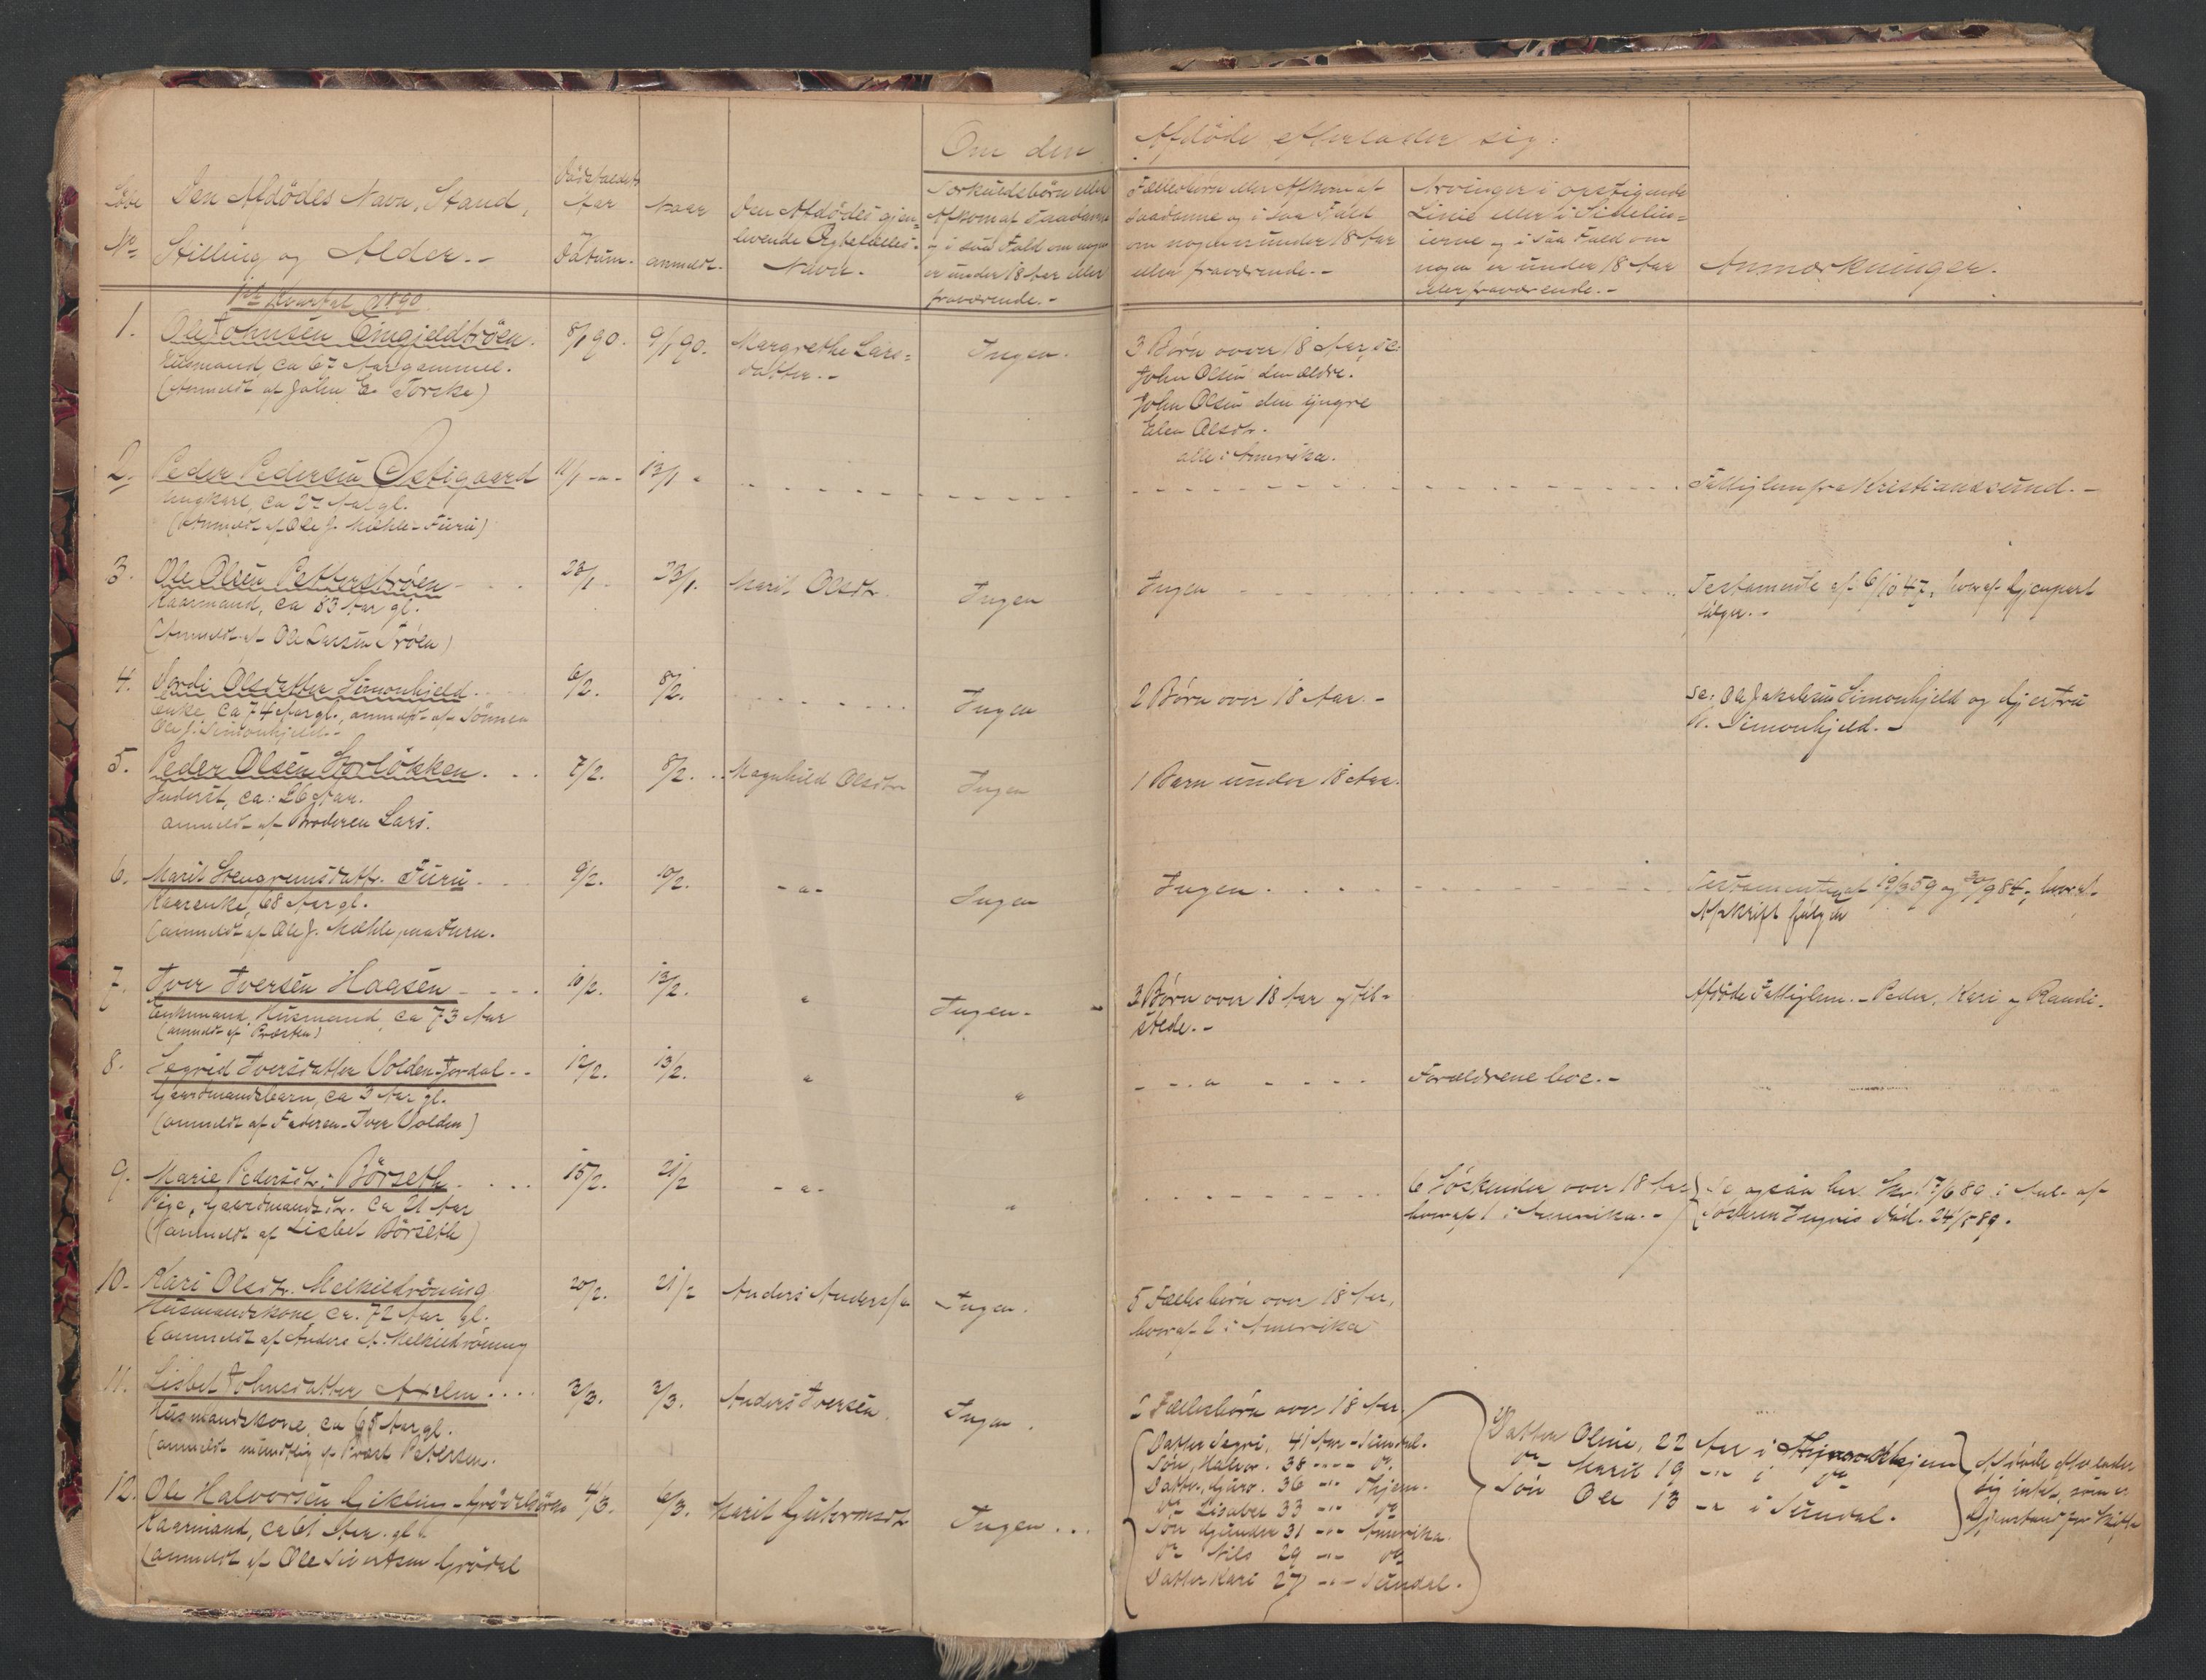 Om den
Afdöde efterlader sig:
Löbe
No
Den Afdödes Navn, Stand,
Stilling og Alder.-
Dödsfaldets
Aar
og
Datum.
Naar
anmeldt.
Den Afdödes gjen-
levende Ægtefælles
Navn.
Særkuldsbörn eller
Afkom af saadanne
og i saa Fald om nogen
er under 18 Aar eller
fraværende.-
Fællesbörn eller Afkom af
saadanne og i saa Fald
om nogen er under 18 Aar
eller fraværende.-
Arvinger i opstigende
Linie eller i Sidelin-
ierne og i saa Fald om
nogen er under 18 Aar
eller fraværende.-
Anmærkninger.
1ste Kvartal 1890
1.
Ole Johnsen
Husmand, ca 67 Aar gammel.
(Anmeldt af John E. Torske)
8/1 90.
9/1 90.
Margrethe Lars=
datter.-
Ingen.
3 Börn over 18 Aar, sc:
John Olsen den ældre.
John Olsen den yngre
Elen Olsdtr.
alle i Amerika.
2.
Peder Pedersen
Ungkarl, ca 27 Aar gl.
(Anmeldt af Ole J. Mæhle-Furu)
11/1 -"-
13/1 "
Fattiglem fra Kristianssund.-
3.
Ole Olsen Petterströen
Kaarmand, ca 83 Aar gl.
(Anmeldt af Ole Larsen Tröen)
23/1.
Marit Olsdtr.
Ingen
Ingen
Testamente af 6/10 47, hvoraf Gjenpart
følger.-
4.
Olsdatter Simonhjeld
Enke, ca 74 Aar gl., anmeldt af Sönnen
Ole J. Simonhjeld.-
6/2.
8/2.
Ingen
2 Börn over 18 Aar.-
sc: Ole Jakobsen Simonhjeld og Gjertru
Simonhjeld.-
5.
Peder Olsen Storlökken
Inderst, ca: 26 Aar.
anmeldt af Broderen Lars.
7/2.
8/2.
Magnhild Olsdtr
Ingen
1 Barn under 18 Aar.
6.
Marit Stengrimsdattr. Furu
Kaarenke, 68 Aar gl.
(anmeldt af Ole J. Mæhle paa Furu.
9/2.
10/2.
- " -
Ingen
Ingen
Testamenter af 19/3 59 og 30/9 84, hvoraf
Afskrift følger
7.
Iver Iversen Haasen
Enkemand, Husmand, ca 73 Aar
(anmeldt af Præsten)
10/2.
13/2.
"
Ingen-
3 Börn over 18 Aar og til-
stede.-
Afdöde Fattiglem.- Peder, Kari og Randi.
8.
Segrid Iversdatter Volden-Jordal
Gaardmandsbarn, ca 3 Aar gl.
(anmeldt af Faderen-Iver Volden)
12/2.
13/2.
"
"
- - " - -
Forældrene leve.-
9.
Marie Pedersdtr. Börseth
Pige, Gaardmandsdtr. Ca 21 Aar
(anmeldt af Lisbet Börseth)
15/2.
21/2
- " -
"
6 Söskende over 18 Aar
hvoraf 1 i Amerika.-
Se ogsaa her. 17/6 89 i Anl. af
Söstren Ingris Död. 24/5 89.
10-
Kari Olsdtr. Melkildröning
Husmandskone, ca. 72 Aar gl.
(anmeldt af Anders A. Melkildröning
20/2.
21/2
Anders Anders/n
Ingen.
5 Fællesbörn over 18 Aar,
hvoraf 2 i Amerika
11.
Lisbet Johnsdatter
Husmandskone, ca 65 Aar gl.
(anmeldt mundtlig af Præst Petersen.
2/3.
2/3.
Anders Iversen
Ingen.
2 Fællesbörn over 18 Aar.
12.
Ole Halvorsen Gikling-Grödal
Kaarmand, ca 61 Aar. gl.
(anmeldt af Ole Sivertsen Grödal
4/3.
6/3.
Marit Guttormsdtr
Ingen...
Datter Segri, 41 Aar - Sundal.
Sön, Halvor. 38 -"- do.
Datter, Guro. 36 -"- Thjem.
do Lisabet 33 -"- do
Sön Gunder 31 -"- Amerika.
do Nils 29 -"- do
Datter Kari 27 -"- Sundal.
Datter Oline, 22 Aar i Throndhjem
do Marit 19 -"- i do
Sön Ole 13 -"- i Sundal.
Afdöde efterlader
sig intet, som er
Gjenstand for Skifte